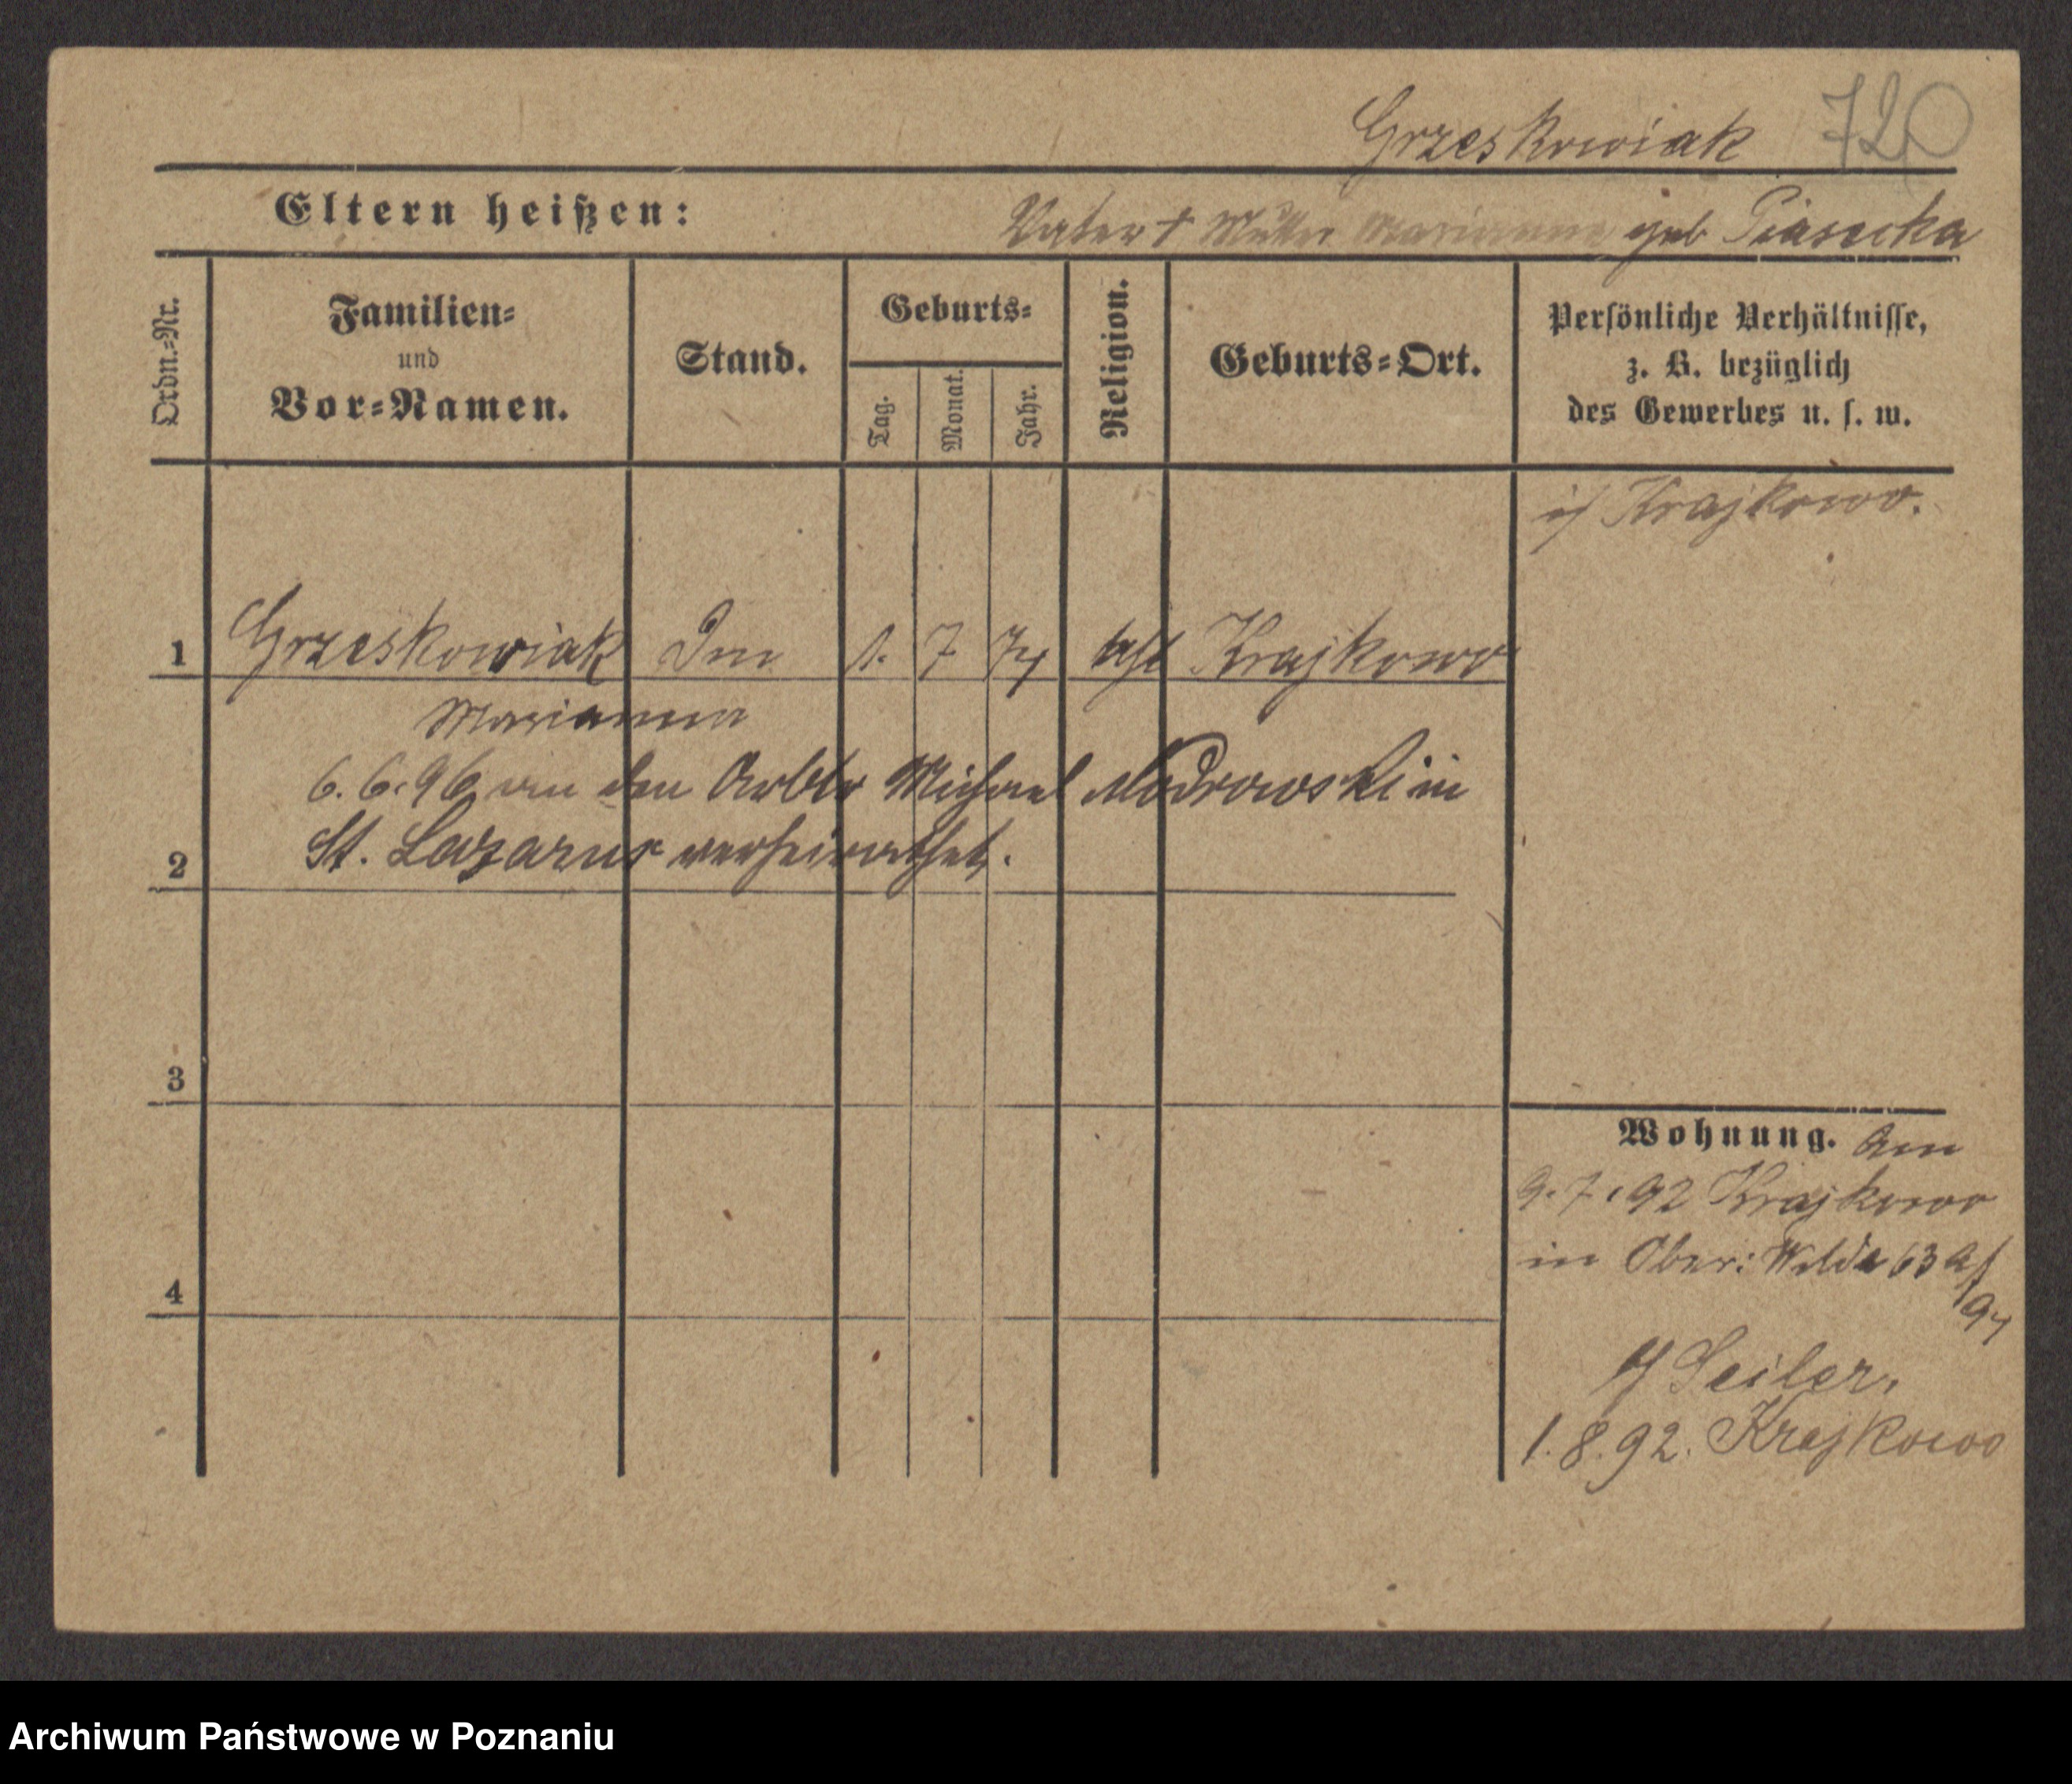 Grzeskowiak 720
Eltern heißen: Vater † Mutter Marianna geb Piasecka
Ordn.-Nr.
Familien- und Vor-Namen.
Stand.
Geburts-
Tag.
Monat.
Jahr.
Religion.
Geburts-Ort.
Persönliche Verhältnisse,
z. B. bezüglich
des Gewerbes u. s. w.
Krajkowo.
1 Grzeskowiak 1. 7 74 kath Krajkowo
Marianna
6.6.96 an den Arbtr Michael Modrowski in
2 St. Lazarus verheirathet.
3
4
Wohnung. Am
9.7.92 Krajkowo
in Ober: Wilda 63
Seiler,
1.8.92. Krajkowo
Archiwum Państwowe w Poznaniu